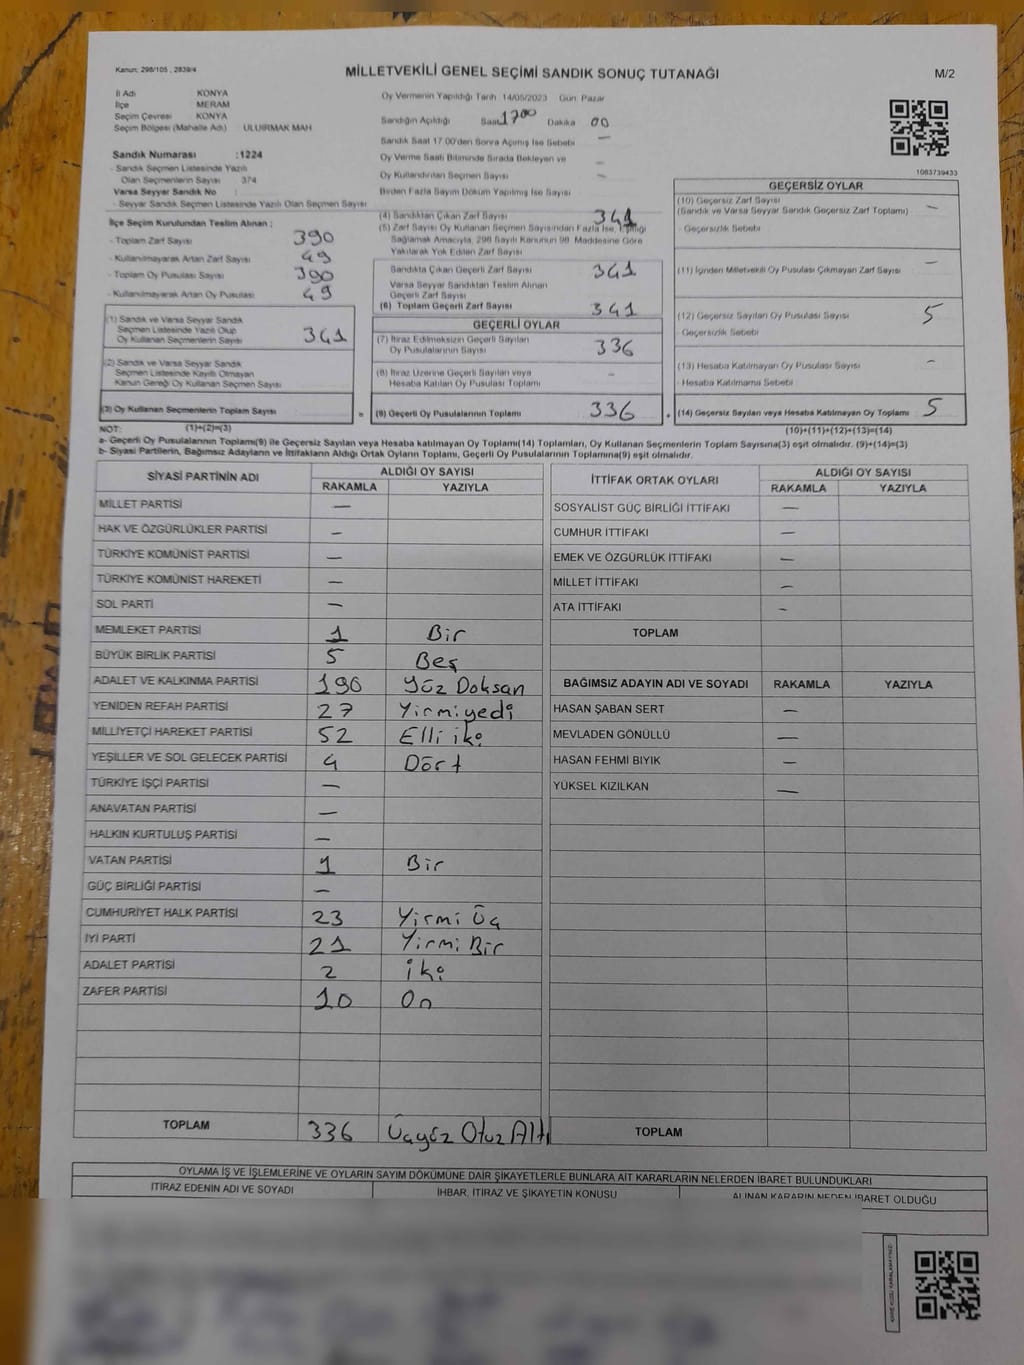 Kanun: 298/105 , 2839/4
MİLLETVEKİLİ GENEL SEÇİMİ SANDIK SONUÇ TUTANAĞI
M/2
İl Adı KONYA
İlçe MERAM
Seçim Çevresi KONYA
Seçim Bölgesi (Mahalle Adı) ULUIRMAK MAH
Sandık Numarası :1224
- Sandık Seçmen Listesinde Yazılı
Olan Seçmenlerin Sayısı 374
Varsa Seyyar Sandık No :
- Seyyar Sandık Seçmen Listesinde Yazılı Olan Seçmen Sayısı
Oy Vermenin Yapıldığı Tarih 14/05/2023 Gün Pazar
Sandığın Açıldığı Saat 1700 Dakika 00
Sandık Saat 17.00'den Sonra Açılmış İse Sebebi —
Oy Verme Saati Bitiminde Sırada Bekleyen ve
Oy Kullandırılan Seçmen Sayısı —
Birden Fazla Sayım Döküm Yapılmış İse Sayısı —
1083739433
İlçe Seçim Kurulundan Teslim Alınan ;
- Toplam Zarf Sayısı 390
- Kullanılmayarak Artan Zarf Sayısı 49
- Toplam Oy Pusulası Sayısı 390
- Kullanılmayarak Artan Oy Pusulası 49
(1) Sandık ve Varsa Seyyar Sandık
Seçmen Listesinde Yazılı Olup
Oy Kullanan Seçmenlerin Sayısı 341
(2) Sandık ve Varsa Seyyar Sandık
Seçmen Listesinde Kayıtlı Olmayan
Kanun Gereği Oy Kullanan Seçmen Sayısı
(3) Oy Kullanan Seçmenlerin Toplam Sayısı =
(4) Sandıktan Çıkan Zarf Sayısı 341
(5) Zarf Sayısı Oy Kullanan Seçmen Sayısından Fazla İse, Eşitliği
Sağlamak Amacıyla, 298 Sayılı Kanunun 98. Maddesine Göre
Yakılarak Yok Edilen Zarf Sayısı
Sandıkta Çıkan Geçerli Zarf Sayısı 341
Varsa Seyyar Sandıktan Teslim Alınan
Geçerli Zarf Sayısı
(6) Toplam Geçerli Zarf Sayısı 341
GEÇERLİ OYLAR
(7) İtiraz Edilmeksizin Geçerli Sayılan
Oy Pusulalarının Sayısı 336
(8) İtiraz Üzerine Geçerli Sayılan veya
Hesaba Katılan Oy Pusulası Toplamı —
(9) Geçerli Oy Pusulalarının Toplamı 336 +
GEÇERSİZ OYLAR
(10) Geçersiz Zarf Sayısı
(Sandık ve Varsa Seyyar Sandık Geçersiz Zarf Toplamı) —
- Geçersizlik Sebebi
(11) İçinden Milletvekili Oy Pusulası Çıkmayan Zarf Sayısı —
(12) Geçersiz Sayılan Oy Pusulası Sayısı 5
- Geçersizlik Sebebi
(13) Hesaba Katılmayan Oy Pusulası Sayısı —
- Hesaba Katılmama Sebebi
(14) Geçersiz Sayılan veya Hesaba Katılmayan Oy Toplamı 5
NOT: (1)+(2)=(3)
(10)+(11)+(12)+(13)=(14)
a- Geçerli Oy Pusulalarının Toplamı(9) ile Geçersiz Sayılan veya Hesaba katılmayan Oy Toplamı(14) Toplamları, Oy Kullanan Seçmenlerin Toplam Sayısına(3) eşit olmalıdır. (9)+(14)=(3)
b- Siyasi Partilerin, Bağımsız Adayların ve İttifakların Aldığı Ortak Oyların Toplamı, Geçerli Oy Pusulalarının Toplamına(9) eşit olmalıdır.
SİYASİ PARTİNİN ADI ALDIĞI OY SAYISI
RAKAMLA YAZIYLA
MİLLET PARTİSİ —
HAK VE ÖZGÜRLÜKLER PARTİSİ —
TÜRKİYE KOMÜNİST PARTİSİ —
TÜRKİYE KOMÜNİST HAREKETİ —
SOL PARTİ —
MEMLEKET PARTİSİ 1 Bir
BÜYÜK BİRLİK PARTİSİ 5 Beş
ADALET VE KALKINMA PARTİSİ 190 Yüz Doksan
YENİDEN REFAH PARTİSİ 27 Yirmiyedi
MİLLİYETÇİ HAREKET PARTİSİ 52 Elli iki
YEŞİLLER VE SOL GELECEK PARTİSİ 4 Dört
TÜRKİYE İŞÇİ PARTİSİ —
ANAVATAN PARTİSİ —
HALKIN KURTULUŞ PARTİSİ —
VATAN PARTİSİ 1 Bir
GÜÇ BİRLİĞİ PARTİSİ —
CUMHURİYET HALK PARTİSİ 23 Yirmi Üç
İYİ PARTİ 21 Yirmi Bir
ADALET PARTİSİ 2 iki
ZAFER PARTİSİ 10 On
TOPLAM 336 Üçyüz Otuz Altı
İTTİFAK ORTAK OYLARI ALDIĞI OY SAYISI
RAKAMLA YAZIYLA
SOSYALİST GÜÇ BİRLİĞİ İTTİFAKI —
CUMHUR İTTİFAKI —
EMEK VE ÖZGÜRLÜK İTTİFAKI —
MİLLET İTTİFAKI —
ATA İTTİFAKI —
TOPLAM
BAĞIMSIZ ADAYIN ADI VE SOYADI RAKAMLA YAZIYLA
HASAN ŞABAN SERT —
MEVLADEN GÖNÜLLÜ —
HASAN FEHMI BIYIK —
YÜKSEL KIZILKAN —
TOPLAM
OYLAMA İŞ VE İŞLEMLERİNE VE OYLARIN SAYIM DÖKÜMÜNE DAİR ŞİKAYETLERLE BUNLARA AİT KARARLARIN NELERDEN İBARET BULUNDUKLARI
İTİRAZ EDENİN ADI VE SOYADI İHBAR, İTİRAZ VE ŞİKAYETİN KONUSU ALINAN KARARIN NEDEN İBARET OLDUĞU